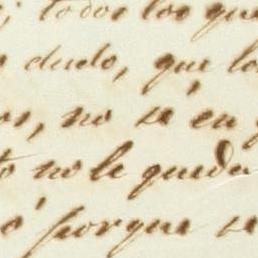 ; todos los que
duelo, que lo
os, no se en q
to no le queda
ó porque se